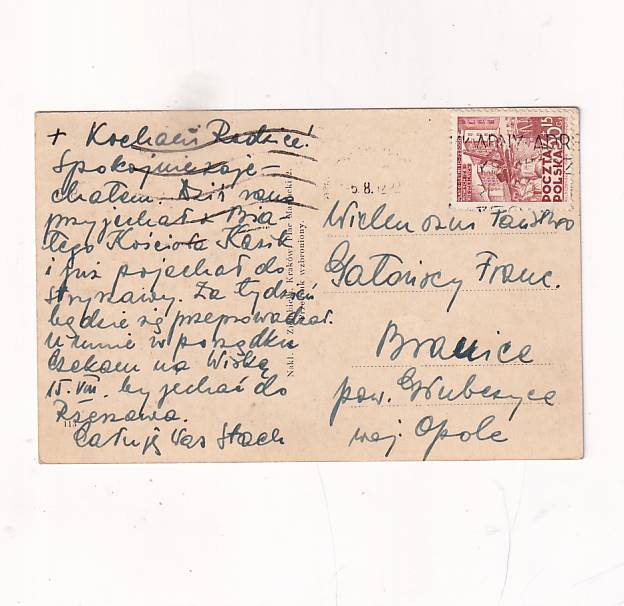 + Kochani Rodzice!
Spokojnie zaje-
chałem. Dziś rano
przyjechał z Bia
łego Kościoła Kazik
i już pojechał do
Stryszawy. Za tydzień
będzie się przeprowadzał.
U mnie w porządku
Czekam na Wisię
15. VIII. by jechać do
Rzeszowa.
Całuję Was Stach
113
Nakł. Kraków, Plac Mariacki 2.
wzbroniony.
6.8.52
POCZTA
POLSKA
Wielmożni Państwo
Gałońscy Franc.
Branice
pow. Głubczyce
woj. Opole